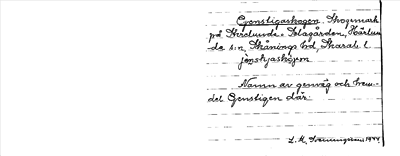 Genstigaskogen. Skogsmark
på Herrlunda - Klagården, Härlun-
da s:n, Skånings hd, Skarab. l.
jènstijaskóg̣en
Namn av genväg och hem-
det Genstigen där.
L. M. 1944